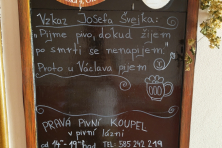 Vzkaz Josefa Švejka:
"Pijme pivo, dokud žijem
po smrti se nenapijem"
Proto u Václava pijem
PRAVÁ PIVNÍ KOUPEL
v pivní lázni
od 14°°-19°°hod TEL: 585 242 219